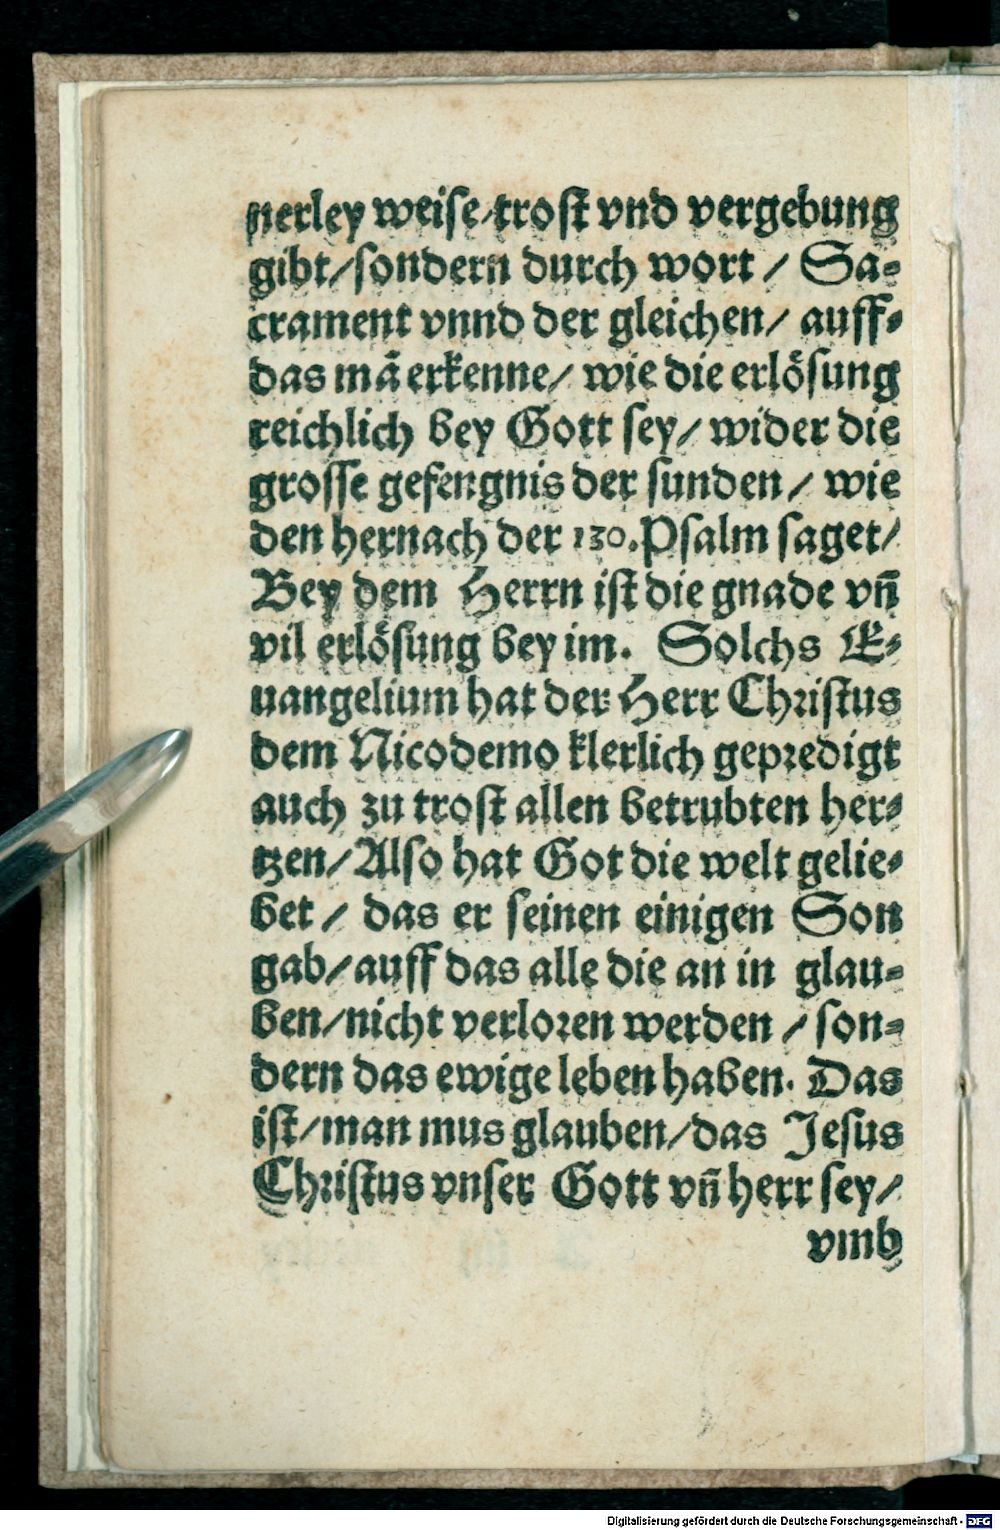 nerley weise/trost vnd vergebung
gibt/sondern durch wort / Sa⸗
crament vnnd der gleichen/ auff⸗
das mã erkenne/ wie die erlösung
reichlich bey Gott sey/ wider die
grosse gefengnis der sunden/ wie
den hernach der 130. Psalm saget/
Bey dem Herrn ist die gnade vñ
vil erlösung bey im. Solchs E⸗
uangelium hat der Herr Christus
dem Nicodemo klerlich gepredigt
auch zu trost allen betrubten her⸗
tzen/Also hat Got die welt gelie⸗
bet / das er seinen einigen Son
gab/auff das alle die an in glau⸗
ben/nicht verloren werden / son⸗
dern das ewige leben haben. Das
ist/man mus glauben/das Jesus
Christus vnser Gott vñ herr sey/
vmb
Digitalisierung gefördert durch die Deutsche Forschungsgemeinschaft - DFG